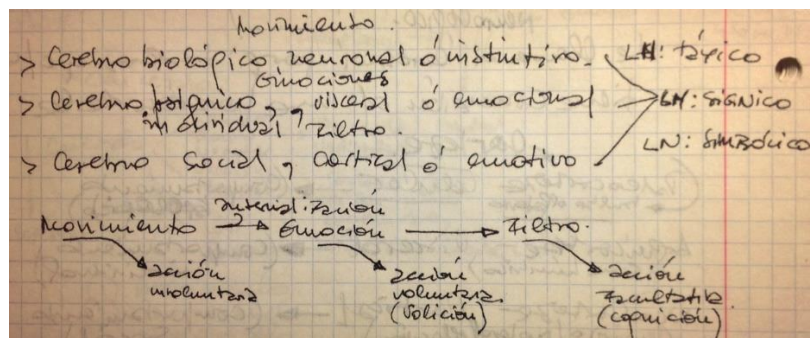 Movimiento.
> Cerebro biológico, neuronal ó instintivo. LH: tápico
Emociones
> Cerebro , visceral ó emocional LH: sígnico
individual Filtro.
> Cerebro social, cortical ó emotivo LN: simbólico
internalización
Movimiento → Emoción → Filtro.
acción acción acción
involuntaria voluntaria. facultativa
(volición) (cognición)